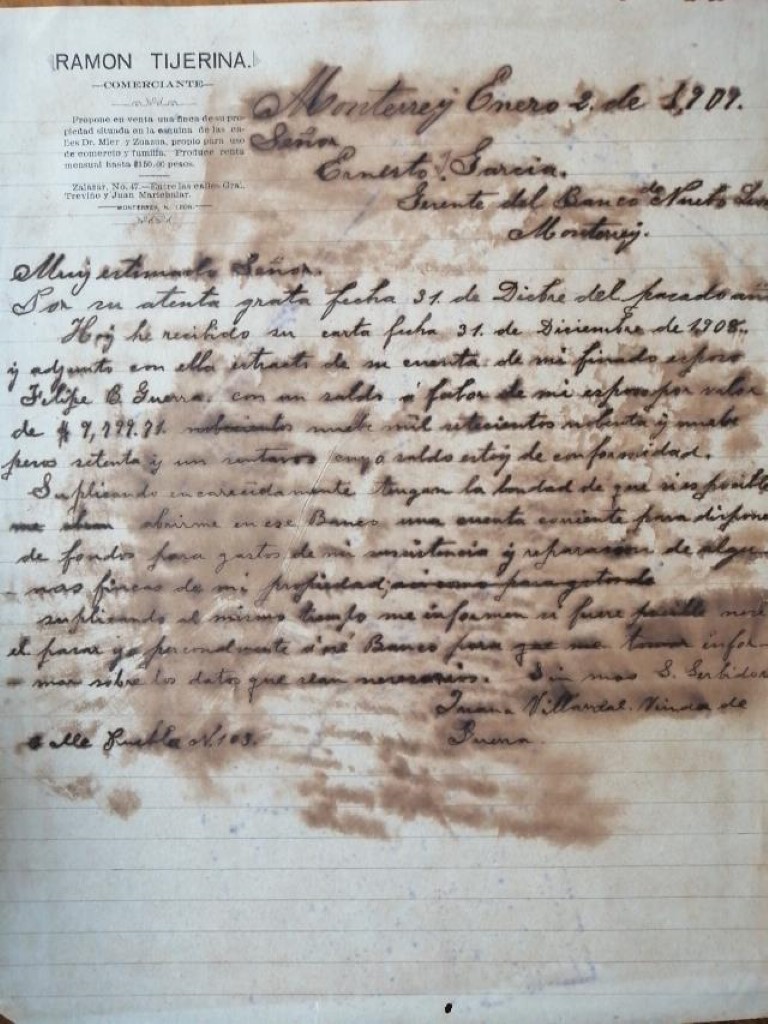 RAMON TIJERINA.
—COMERCIANTE—
Propone en venta una finca de su pro-
piedad situada en la esquina de las ca-
lles Dr. Mier y Zuazua, propio para uso
de comercio y familia. Produce renta
mensual hasta $150.00 pesos.
Zalasar, No. 47.—Entre las calles Gral.
Treviño y Juan
MONTERREY, N. LEON.
Monterrey Enero 2. de 1,909.
Señor
Ernesto. Garcia.
Gerente del Banco de Nuebo Leon
Monterrey.
Muy estimado Señor.
Por su atenta grata fecha 31. de Dicbre del pasado año
Hoy he recibido su carta fecha 31. de Diciembre de 1,908.
y adjunto con ella estracto de su cuenta de mi finado esposo
Felipe C. Guerra. con un saldo á fabor de mi esposo por valor
de $ 9,799.71. nuebe mil setecientos nobenta y nuebe
pesos setenta y un sentavos cuyo saldo estoy de conformidad.
Suplicando encarecidamente tengan la bondad de que si es pocible
abrirme en ese Banco una cuenta coriente para disponer
de fondos para gastos de mi y reparación de algu-
nas fincas de mi propiedad;
suplicando al mismo tiempo me informen si fuere posible
el pasar yo personalmente Banco para que me infor-
man sobre los datos que sean necesarios. Sin mas S. Serbidora
Juana Villarreal. Viuda de
Guerra.
Calle Puebla N. 103.